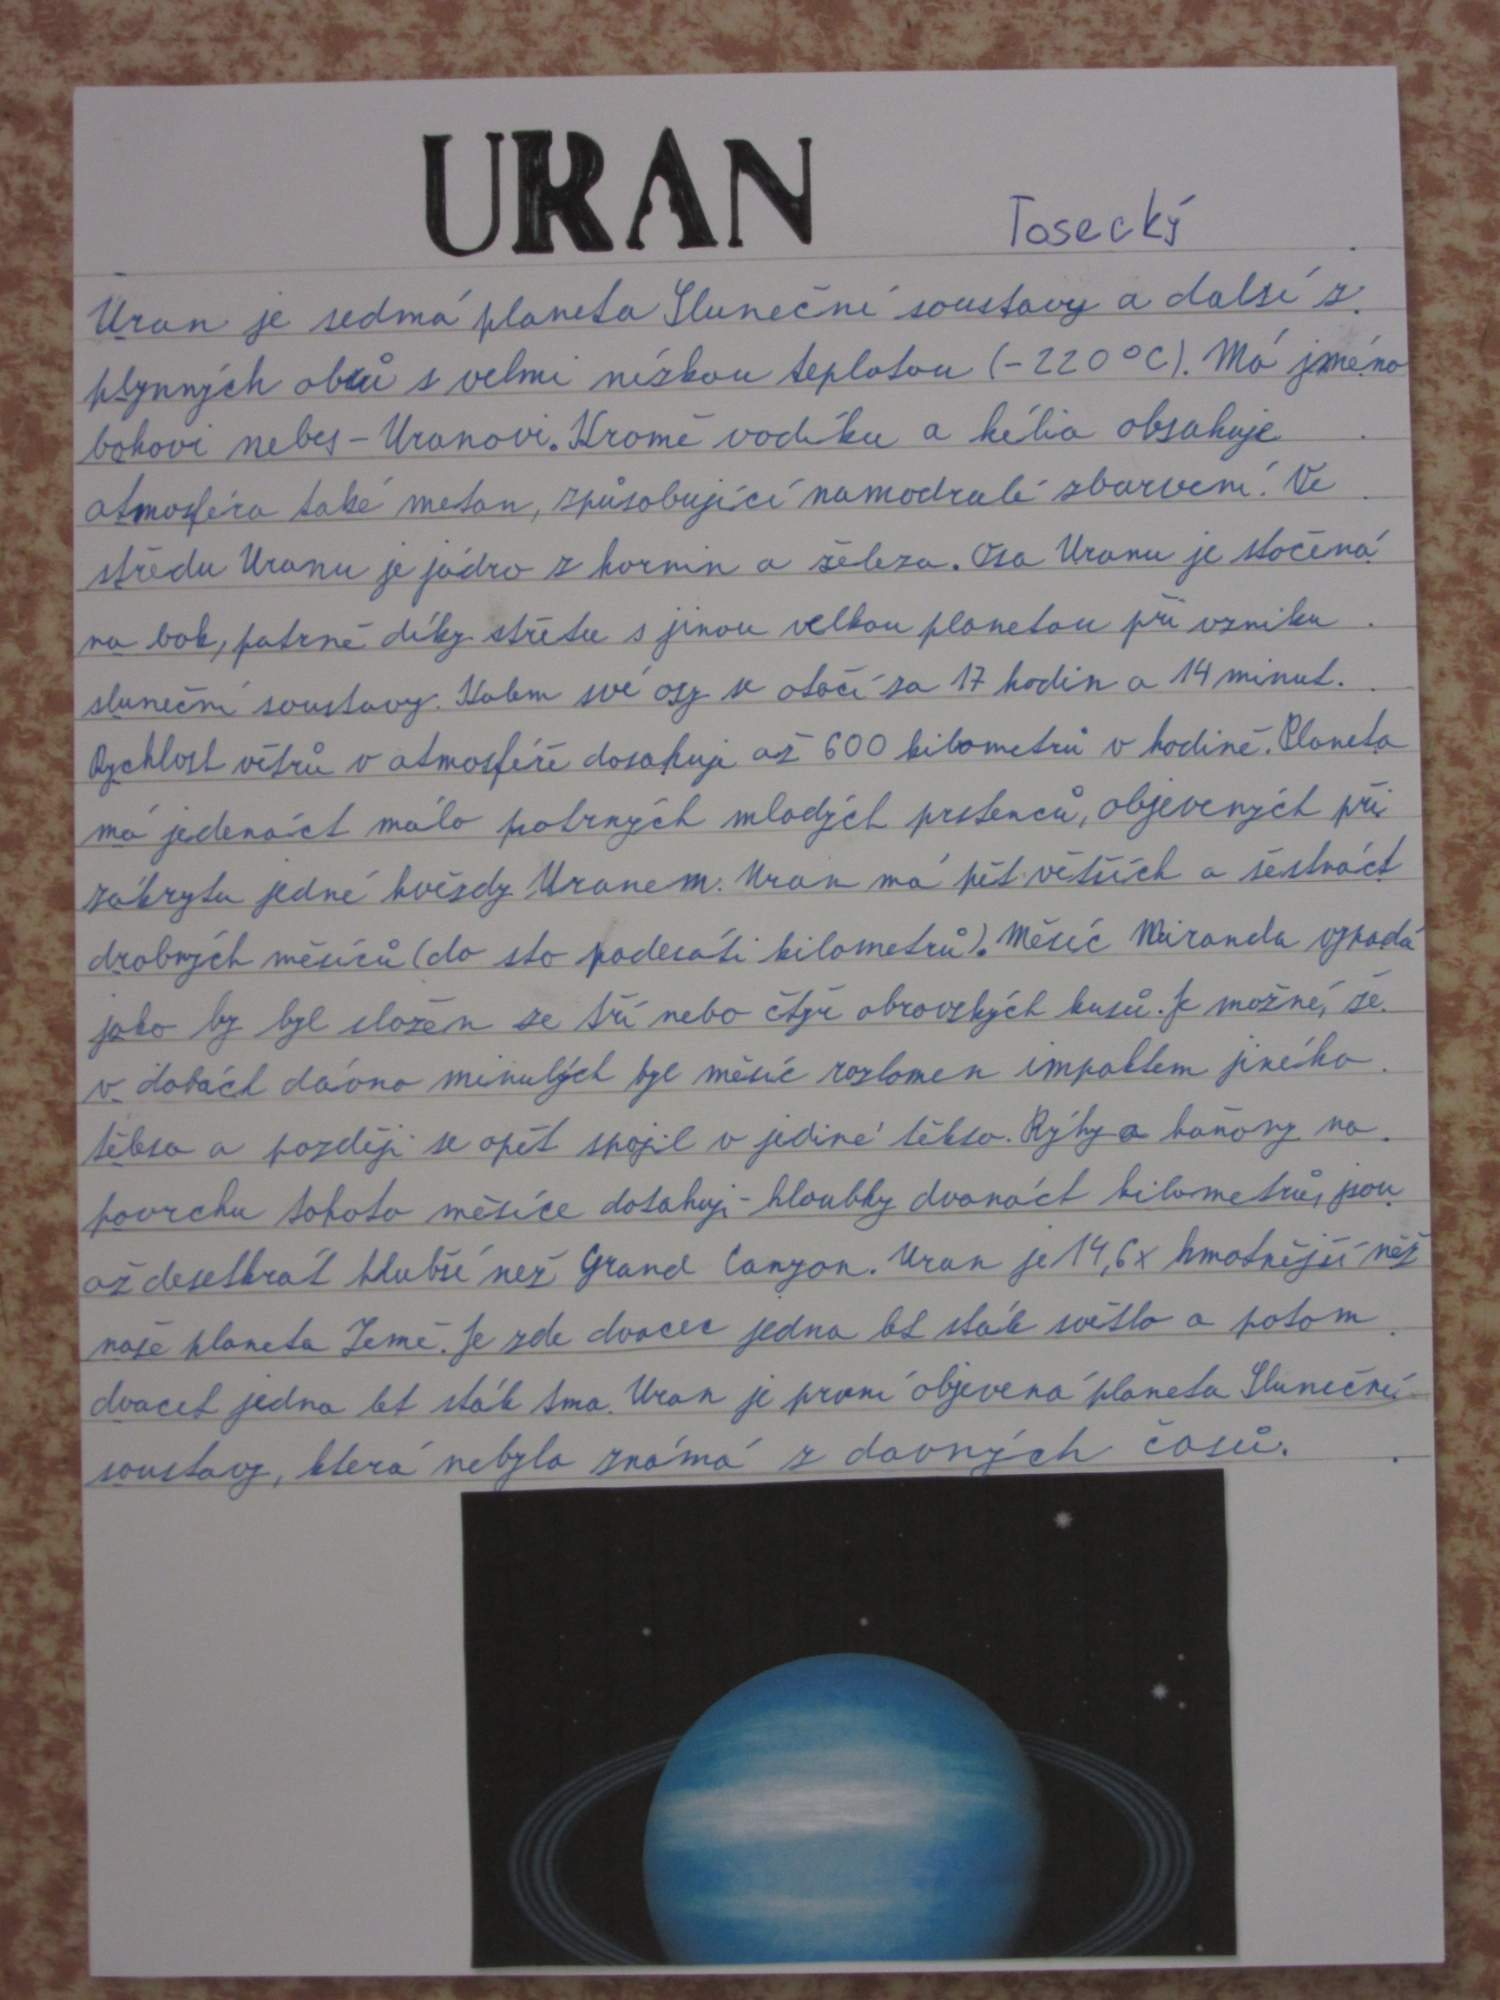 URAN
Tosecký
Uran je sedmá planeta Sluneční soustavy a další z
plynných obrů s velmi nízkou teplotou (-220°C). Má jméno
bohovi nebes-Uranovi. Kromě vodíku a hélia obsahuje
atmosféra také metan, způsobující namodralé zbarvení. Ve
středu Uranu je jádro z hornin a železa. Osa Uranu je stočená
na bok, patrně díky střetu s jinou velkou planetou při vzniku
sluneční soustavy. Kolem své osy se otočí za 17 hodin a 14 minut.
Rychlost větrů v atmosféře dosahuje až 600 kilometrů v hodině. Planeta
má jedenáct málo patrných mladých prstenců, objevených při
zákrytu jedné hvězdy Uranem. Uran má pět větších a šestnáct
drobných měsíců (do sto padesáti kilometrů). Měsíc Miranda vypadá
jako by byl složen ze tří nebo čtyř obrovských kusů. Je možné, že
v dobách dávno minulých byl měsíc rozlomen impaktem jiného
tělesa a později se opět spojil v jediné těleso. Rýhy a kaňony na
povrchu tohoto měsíce dosahují hloubky dvanáct kilometrů, jsou
až desetkrát hlubší než Grand Canyon. Uran je 14,6x hmotnější než
naše planeta Země. Je zde dvacet jedna let stále světlo a potom
dvacet jedna let stále tma. Uran je první objevená planeta Sluneční
soustavy, která nebyla známá z dávných časů.